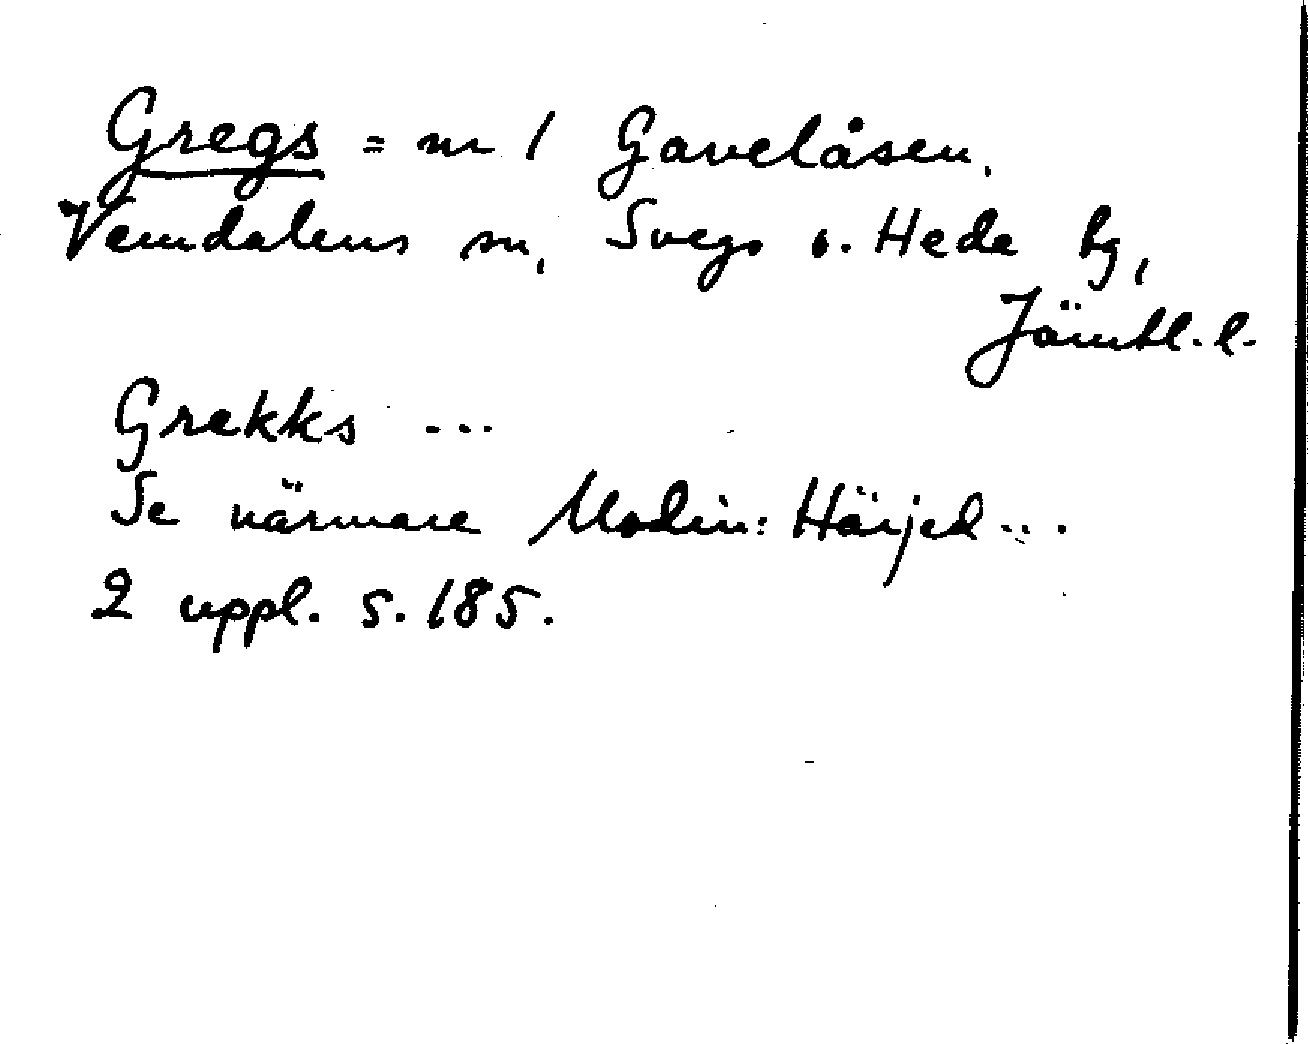 Gregs = nr 1 Gaveläsen,
Vemdalens sn, Svegs o. Hede tg,
Jämtl. l.
Grekks ...
Se närmare Modin: Härjed...
2 uppl. s. 185.